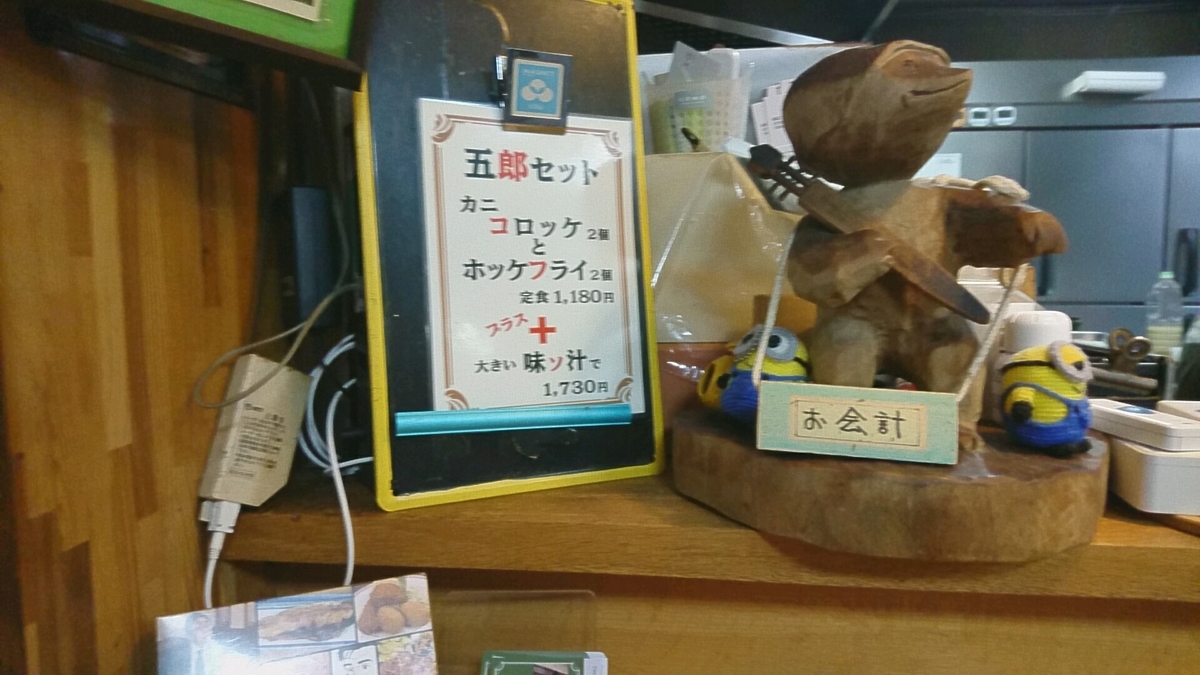 五郎セット
カニ
コロッケ2個
と
ホッケフライ2個
定食1,180円
プラス+
大きい味ソ汁で
1,730円
お会計